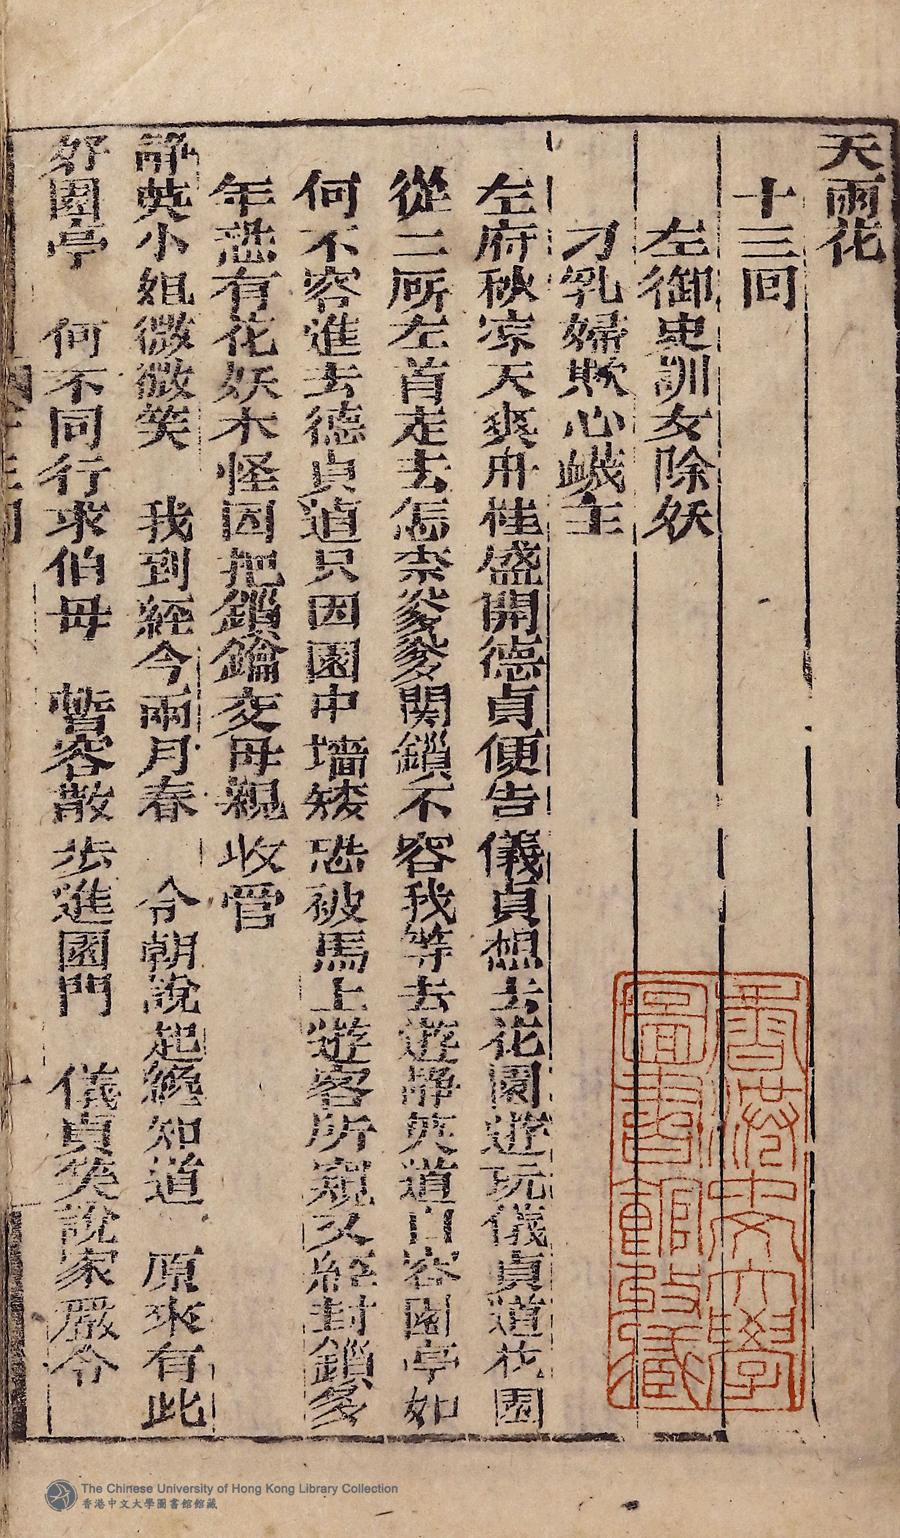 天雨花
十三回
左御史訓女除妖
刁乳婦欺心譏主
左府秋凉天爽丹桂盛開德貞便告儀貞想去花園遊玩儀貞道花園
從二所左首走去怎柰爹爹関鎖不容我等去遊靜英道自客園亭如
何不容進去德貞道只因園中墻矮恐被馬上遊客所窺又經封鎖多
年恐有花妖木怪因把鎖鑰交母親收管
靜英小姐微微笑　我到經今兩月春　今朝說起纔知道　原來有此
好園亭　何不同行求伯母　暫容散步進園門　儀貞笑說家嚴令
香港中文大學
圖書館藏
The Chinese University of Hong Kong Library Collection
香港中文大學圖書館館藏